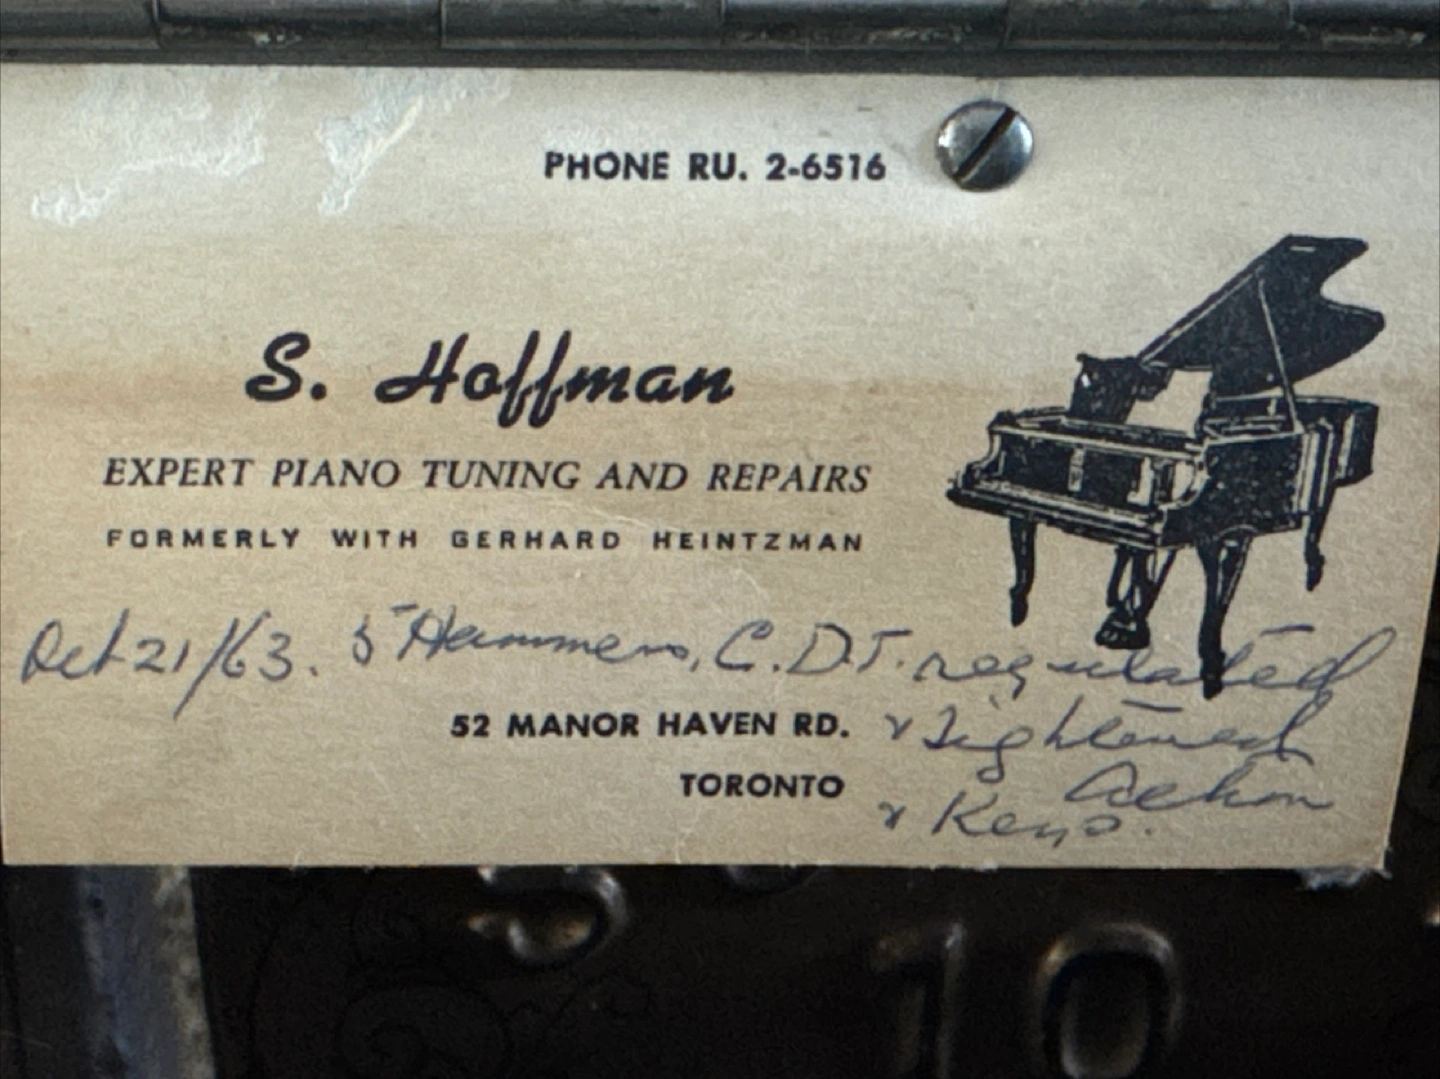 PHONE RU. 2-6516
S. Hoffman
EXPERT PIANO TUNING AND REPAIRS
FORMERLY WITH GERHARD HEINTZMAN
Oct 21/63. 5 Hammers, C.D.T. regulated
52 MANOR HAVEN RD.
& Tightened
TORONTO
Action
& Keys.
10